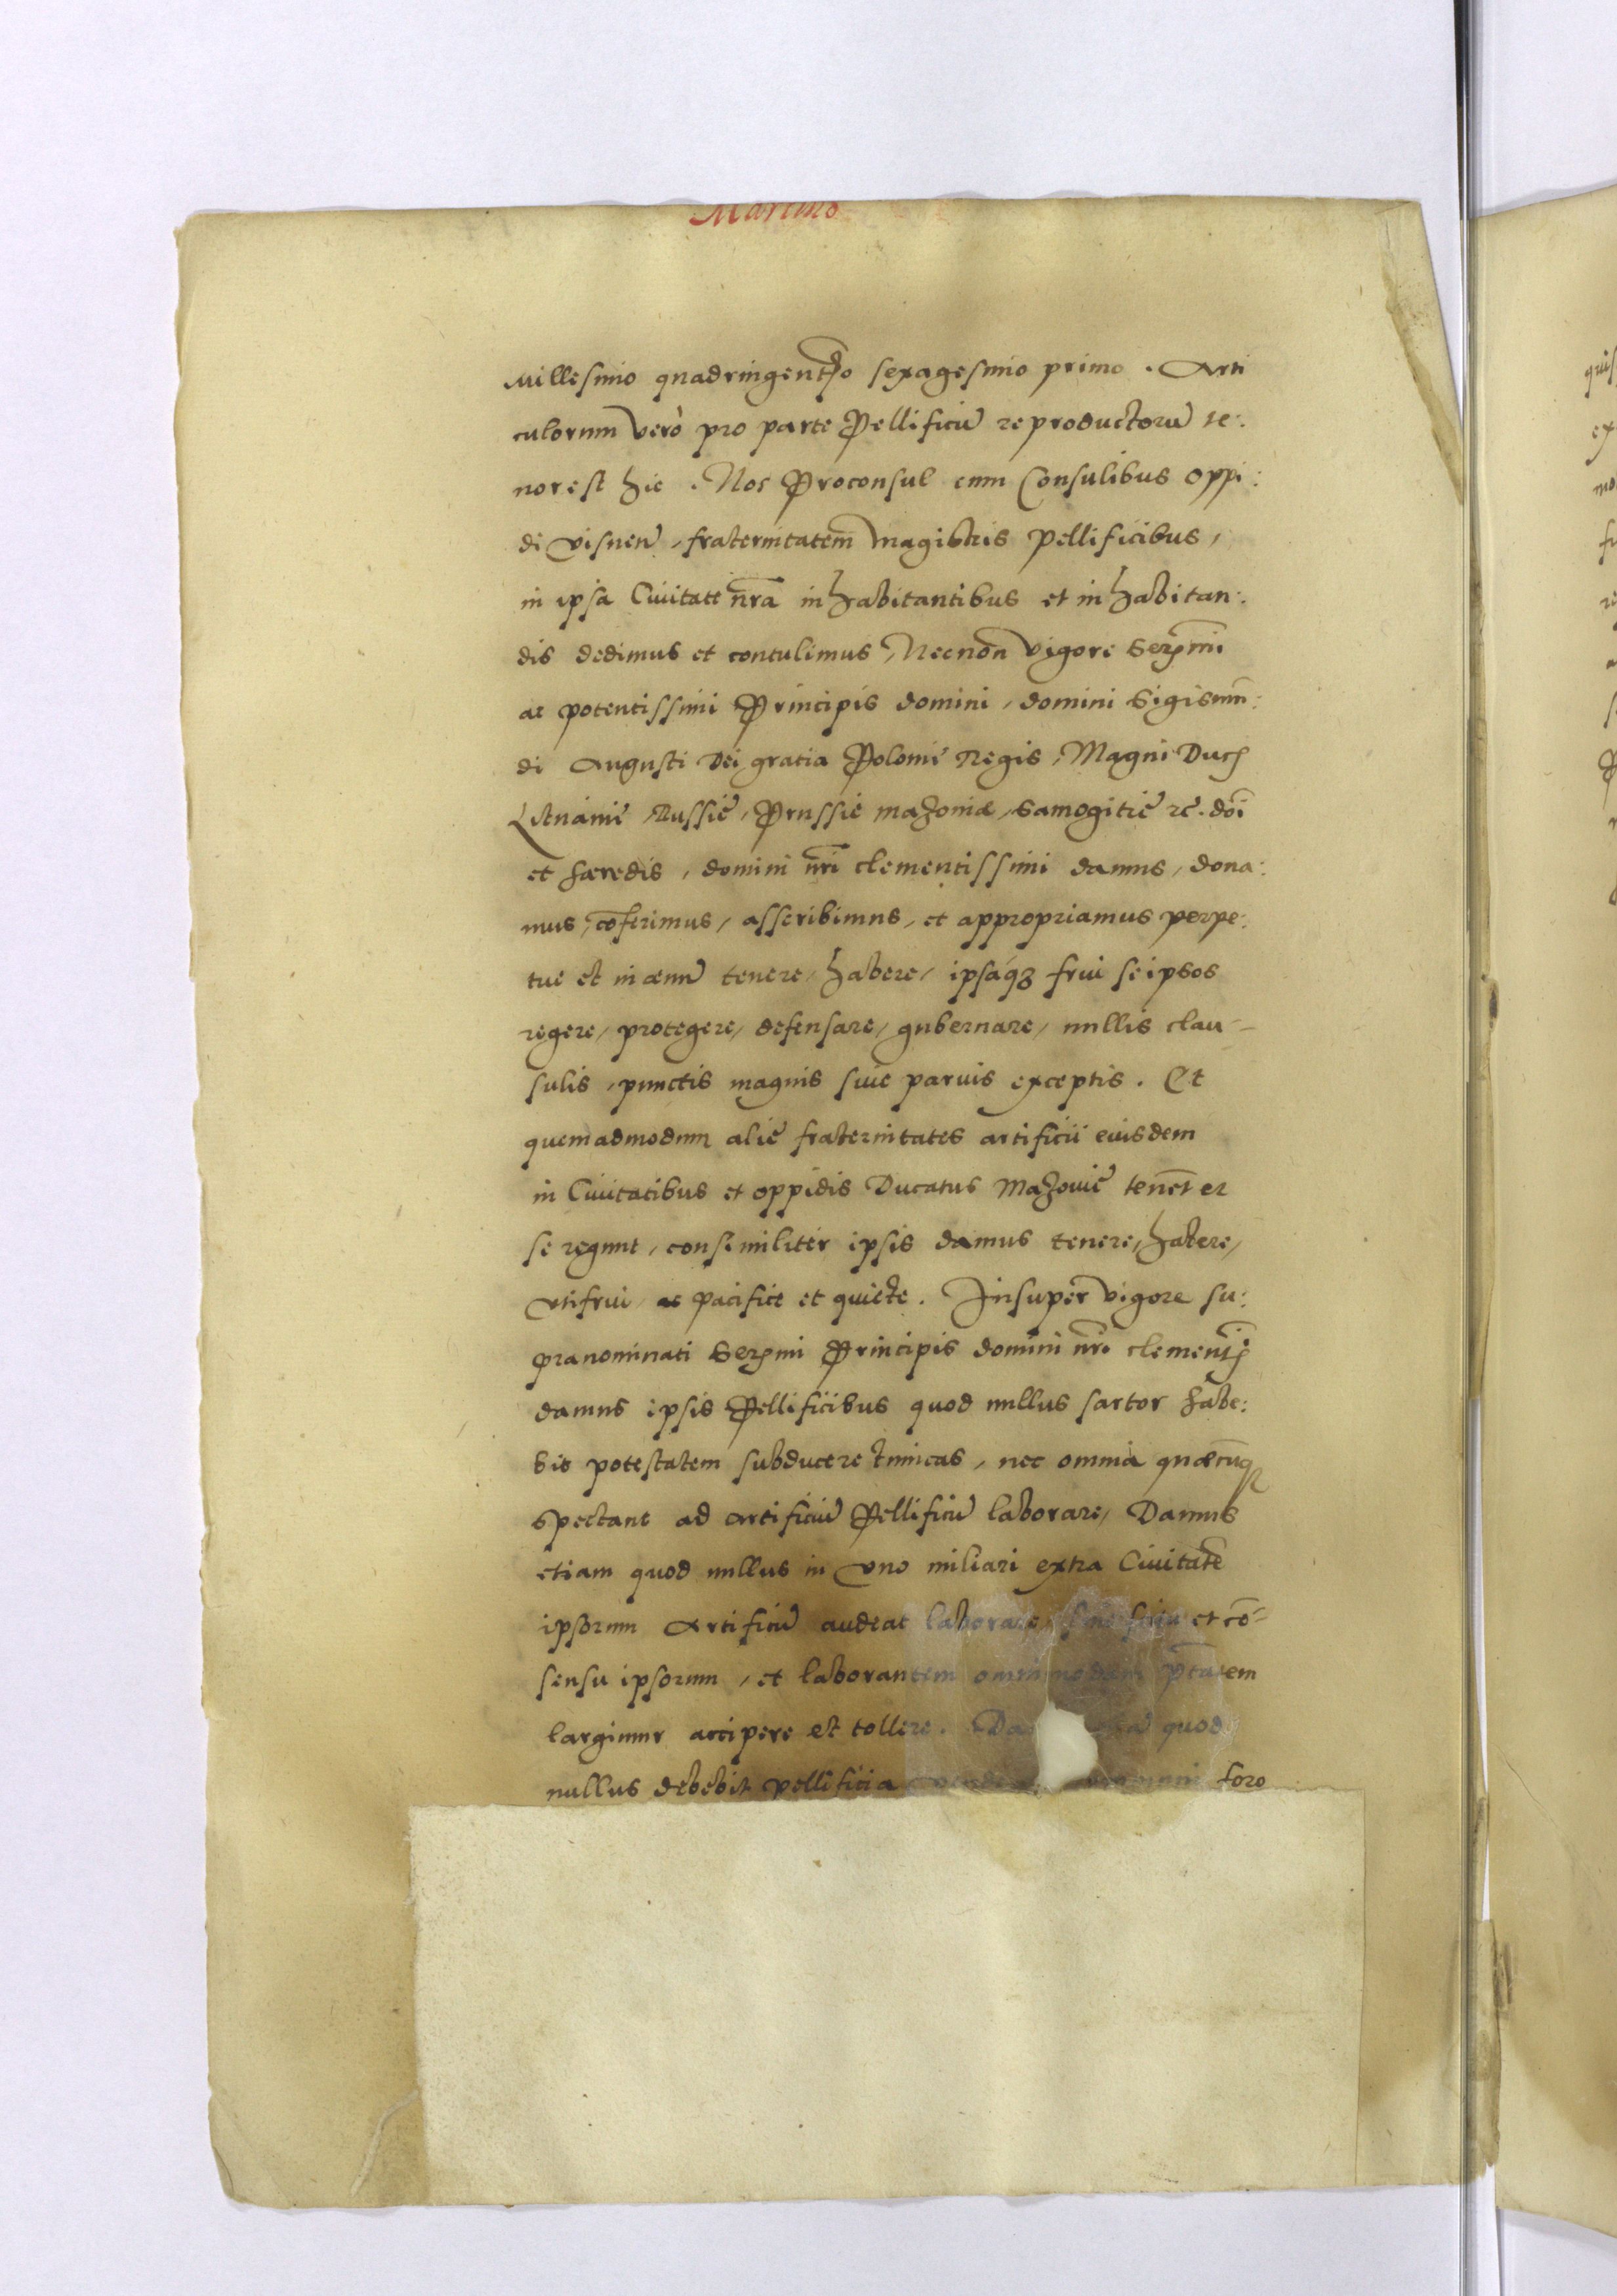 Martino
Millesimo quadringentſo sexagesimo primo . Arti
culorum verò pro parte Pellificũ reproductorũ te:
nor est hic . Nos Proconsul cum Consulibus oppi:
di Visnen̄, fraternitatem̄ magistris pellificibus,
in ipsa Ciuitate nr̄a inhabitantibus et inhabitan:
dis dedimus et contulimus, Necnon̄ vigore Serꝫmi
ac potentissimi Principis domini, domini Sigismun̄:
di Augusti Dei gratia Poloniȩ Regis, Magni Ducꝭ
Lituaniȩ, Russiȩ, Prussiȩ Mazoniæ, Samogitiȩ ꝛc̄. dōi
et hæredis, domini nr̄i clementissimi damus, dona:
mus, cōferimus, asscribimus, et appropriamus perpe:
tue et in æuũ tenere, habere, ipsáqꝫ frui se ipsos
regere, protegere, defensare, gubernare, nullis clau-
sulis, punctis magnis siue paruis exceptis . Et
quemadmodum aliȩ fraternitates artificii eiusdem
in Ciuitatibus et oppidis Ducatus Mazouiȩ tenēt et
se regunt, consimiliter ipsis damus tenere, habere,
vtifrui, ac pacifice et quiete . Insuper vigore su:
pranominati Serꝫmi Principis domini nr̄i clementꝭ
damus ipsis Pellificibus quod nullus sartor habe:
bit potestatem subducere tunicas, nec omnia quæcūqꝫ
spectant ad artificiũ Pellificũ laborare, Damus
etiam quod nullus in vno miliari extra Ciuitatē
ipsorum Artificiũ audeat laborare, sine scitu et cō-
sensu ipsorum, et laborantem omnimodam p̄tatem
largimur accipere et tollere . quod
nullus debebit pellificia foro